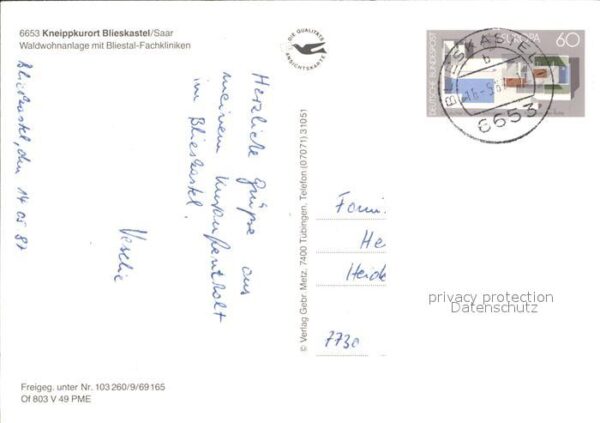 6653 Kneippkurort Blieskastel/Saar
Waldwohnanlage mit Bliestal-Fachkliniken
DIE QUALITÄTS
ANSICHTSKARTE
DEUTSCHE BUNDESPOST
EUROPA
60
BLIESKASTEL
b
6653
Blieskastel, den 14 05 87
Herzliche Grüße aus
meinem Kuraufenthalt
in Blieskastel.
© Verlag Gebr. Metz, 7400 Tübingen, Telefon (07071) 31051
Fami
He
Heide
773
privacy protection
Datenschutz
Freigeg. unter Nr. 103 260/9/69 165
Of 803 V 49 PME